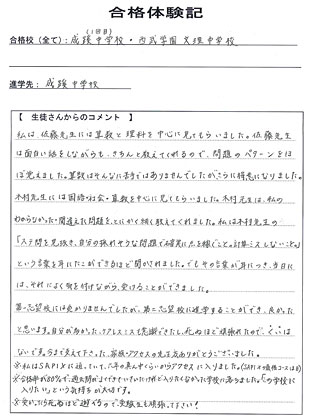 合格体験記
(1回目)
合格校（全て）：成蹊中学校・西武学園文理中学校
進学先：成蹊中学校
【 生徒さんからのコメント 】
私は、佐藤先生には算数と理科を中心に見てもらいました。佐藤先生
は面白い話をしながらも、きちんと教えてくれるので、問題のパターンをほ
ぼ覚えました。算数はそんなに苦手ではありませんでしたがさらに得意になりました。
木村先生には国語・社会・算数を中心に見てもらいました。木村先生は、私の
わからなかった・間違えた問題を、とにかく細く教えてくれました。私は木村先生の
「ステ問を見抜き、自分の採れそうな問題で確実に点を稼ぐことと計算ミスしないこと」
という言葉を耳にたこができるほど聞かされました。でもその言葉が身につき、当日に
は、それによく気を付けながら受けることができました。
第一志望校には受かりませんでしたが、第二志望校に進学することができ、良かった
と思います。自分の努力した、ケアレスミスでも充満できたし、死ぬほど頑張れたので、くいは
ないです。今まで支えて下さった、家族・アクセスの先生方ありがとうございました。
※私はSAPIXに通っていて、六年の真ん中くらいからアクセスに入りました。
※合格率が80%で、過去問がよくできていたけれど入りたくなかった学校に落ちました。「この学校に
入りたい」という気持ちが大切です。
※受かったら死ぬほど遊べるので、受験生も頑張って下さい！